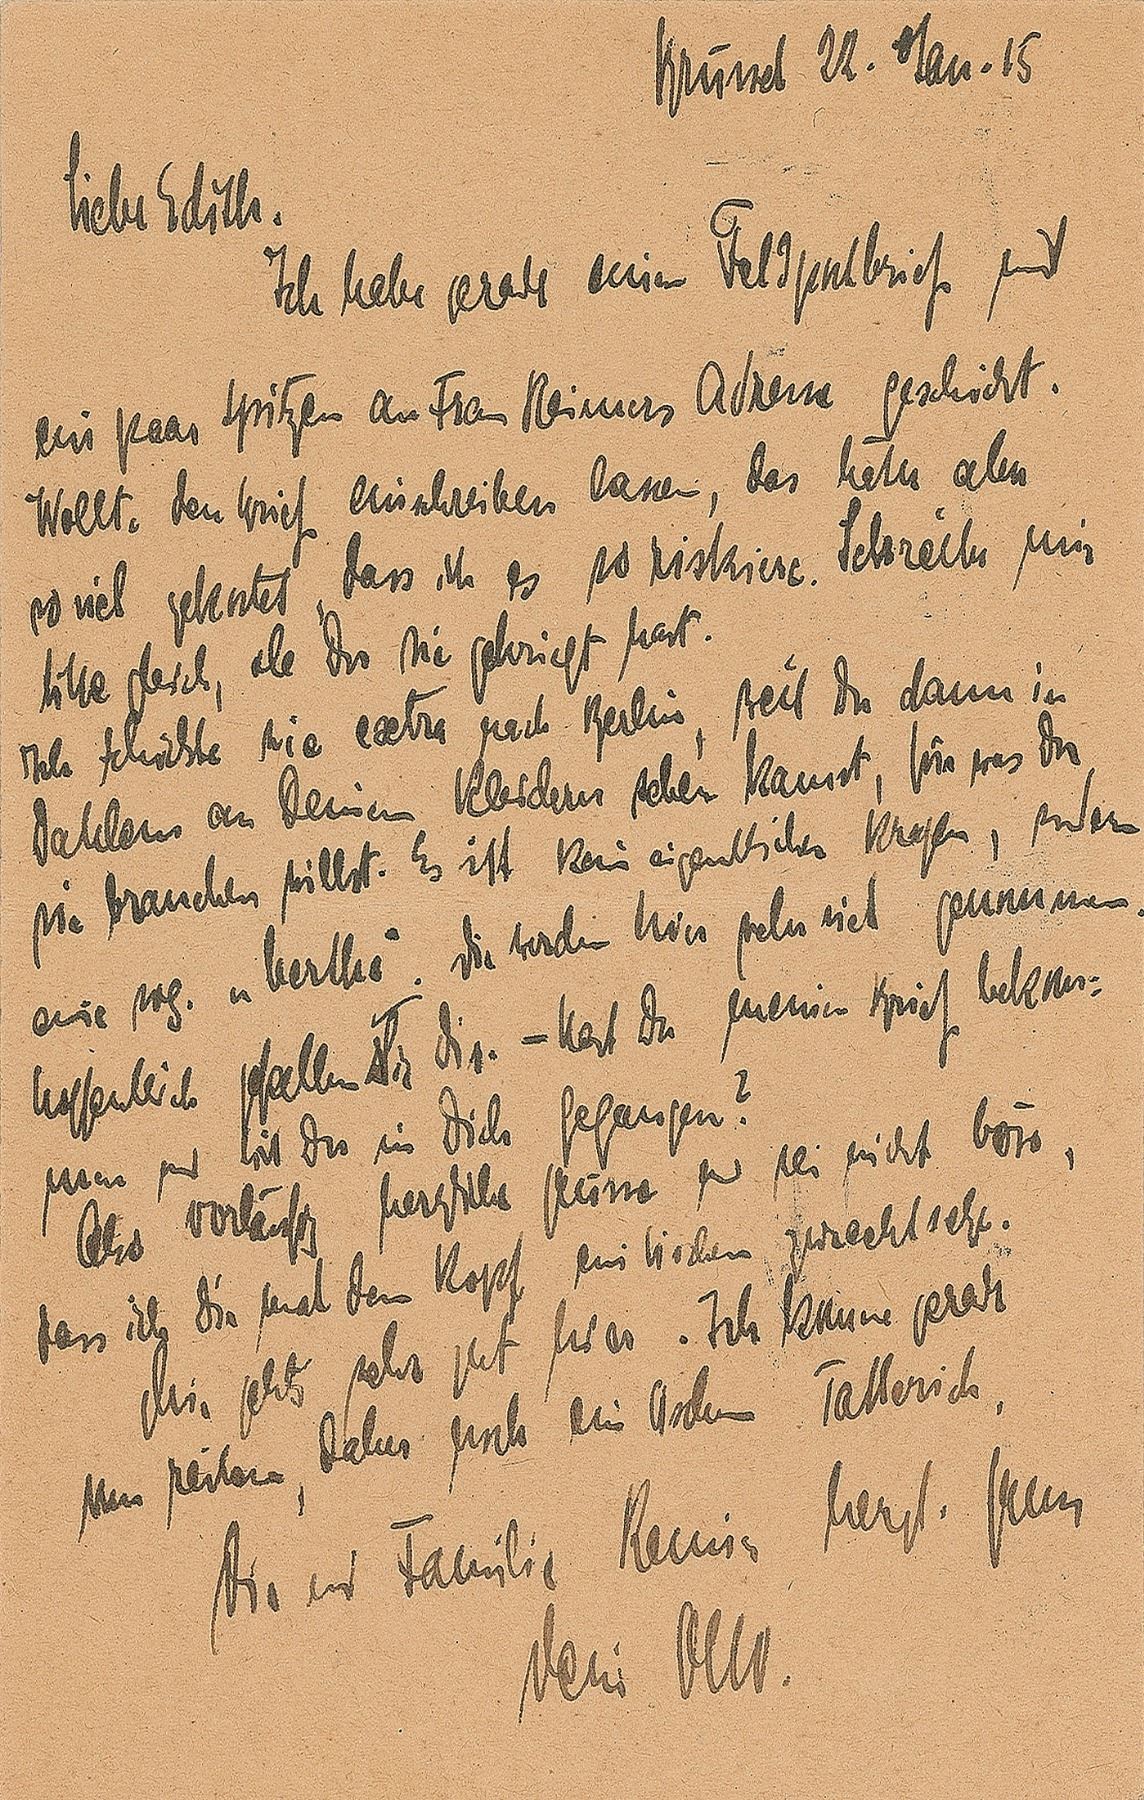 Brüssel 22. Jan. 15
Liebe Edith.
Ich habe gerade einen Feldpostbrief mit
ein paar Spitzen an Frau Reimers Adresse geschickt.
Wollte den Brief einschreiben lassen, das hätte aber
so viel gekostet, dass ich es so riskiere. Schreibe mir
bitte gleich, ob Du sie gekriegt hast.
Ich schickte sie extra nach Berlin, weil Du dann in
Dahlem an Deinen Kleidern sehen kannst, für was Du
sie brauchen willst. Es ist kein eigentlicher Kragen, sondern
eine sog. „Berthe". Die werden hier sehr viel genommen.
Hoffentlich gefallen sie Dir. – Hast Du meinen Brief bekom=
men und bist Du in Dich gegangen?
Also vorläufig herzliche Grüsse und sei nicht böse,
dass ich Dir mal den Kopf ein bischen zurechtsetze.
Mir gehts sehr gut hier. Ich komme gerade
vom reiten, daher noch ein Tatterich.
Dir und Familie herzl. Gruss
Dein Otto.